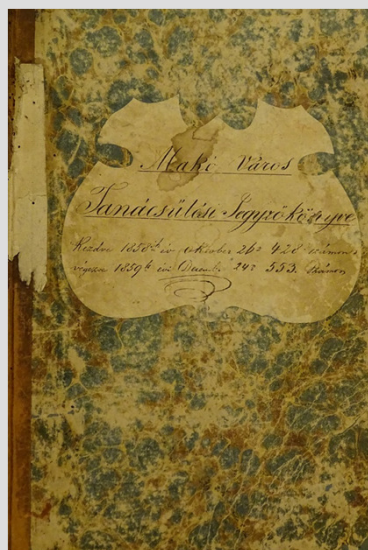 Makó Város
Tanácsülési Jegyzőkönyve
Kezdve 1858ik évi October 26án 428 számon
végezve 1859ik évi December 24én 553 számon